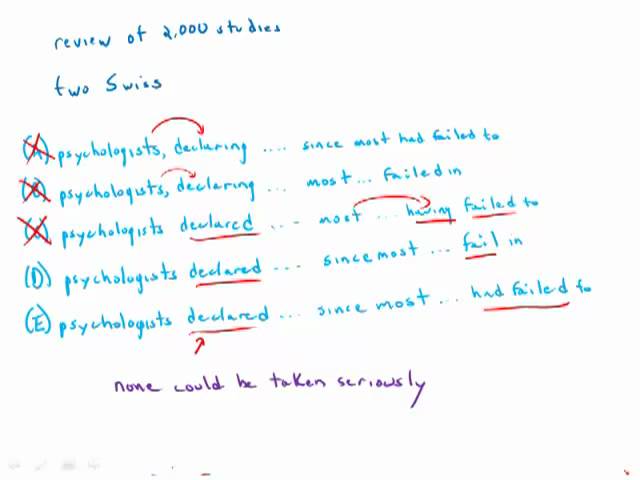 review of 2,000 studies
two Swiss
(A) psychologists, declaring .... since most had failed to
(B) psychologists, declaring ... most... failed in
(C) psychologists declared ... most ... having failed to
(D) psychologists declared ... since most ... fail in
(E) psychologists declared ... since most... had failed to
none could be taken seriously